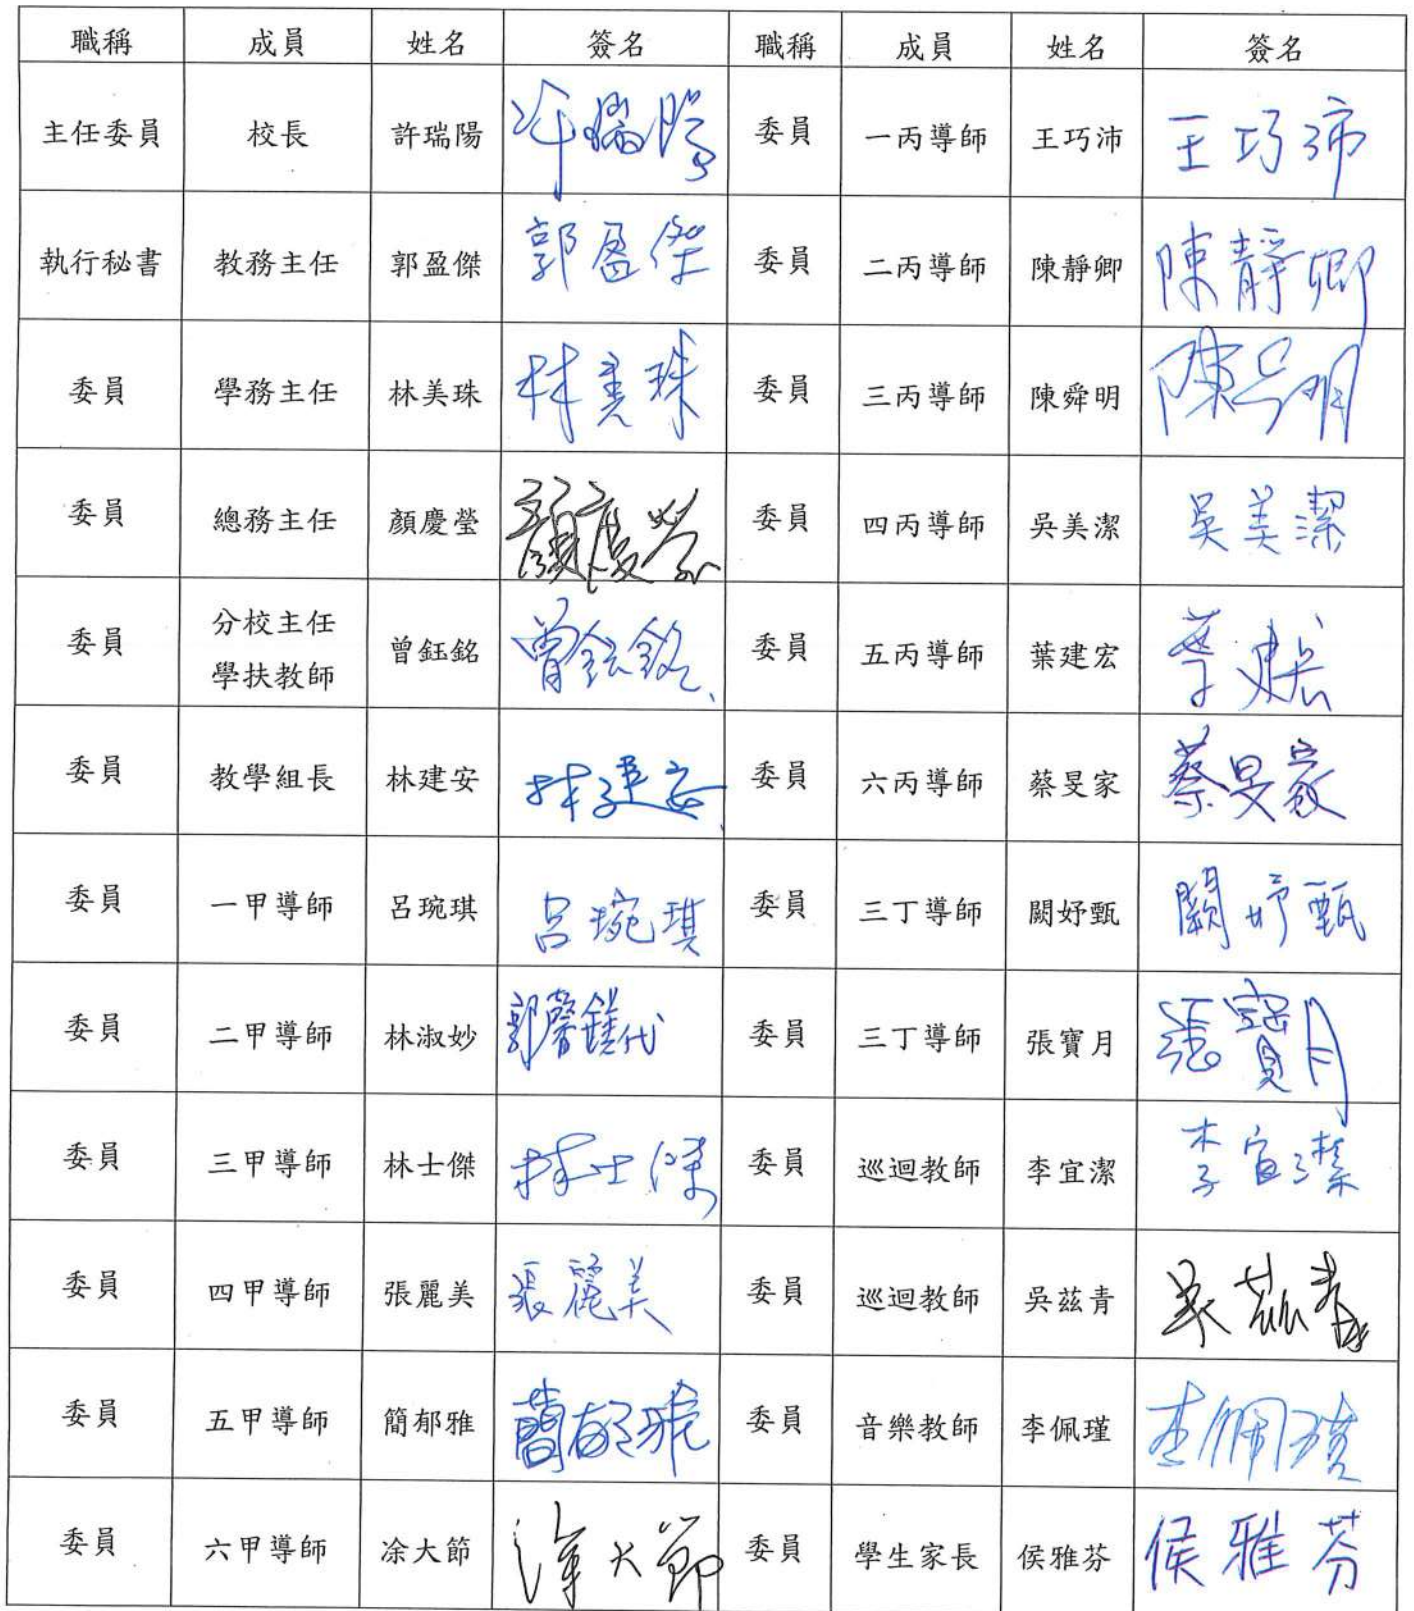 職稱 成員 姓名 簽名 職稱 成員 姓名 簽名
主任委員 校長 許瑞陽 許瑞陽 委員 一丙導師 王巧沛 王巧沛
執行秘書 教務主任 郭盈傑 郭盈傑 委員 二丙導師 陳靜卿 陳靜卿
委員 學務主任 林美珠 林美珠 委員 三丙導師 陳舜明 陳舜明
委員 總務主任 顏慶瑩 顏慶瑩 委員 四丙導師 吳美潔 吳美潔
委員 分校主任 曾鈺銘 曾鈺銘 委員 五丙導師 葉建宏 葉建宏
學扶教師
委員 教學組長 林建安 林建安 委員 六丙導師 蔡旻家 蔡旻家
委員 一甲導師 呂琬琪 呂琬琪 委員 三丁導師 闕妤甄 闕妤甄
委員 二甲導師 林淑妙 郭馨鎂代 委員 三丁導師 張寶月 張寶月
委員 三甲導師 林士傑 林士傑 委員 巡迴教師 李宜潔 李宜潔
委員 四甲導師 張麗美 張麗美 委員 巡迴教師 吳茲青 吳茲青
委員 五甲導師 簡郁雅 簡郁雅 委員 音樂教師 李佩瑾 李佩瑾
委員 六甲導師 凃大節 凃大節 委員 學生家長 侯雅芬 侯雅芬